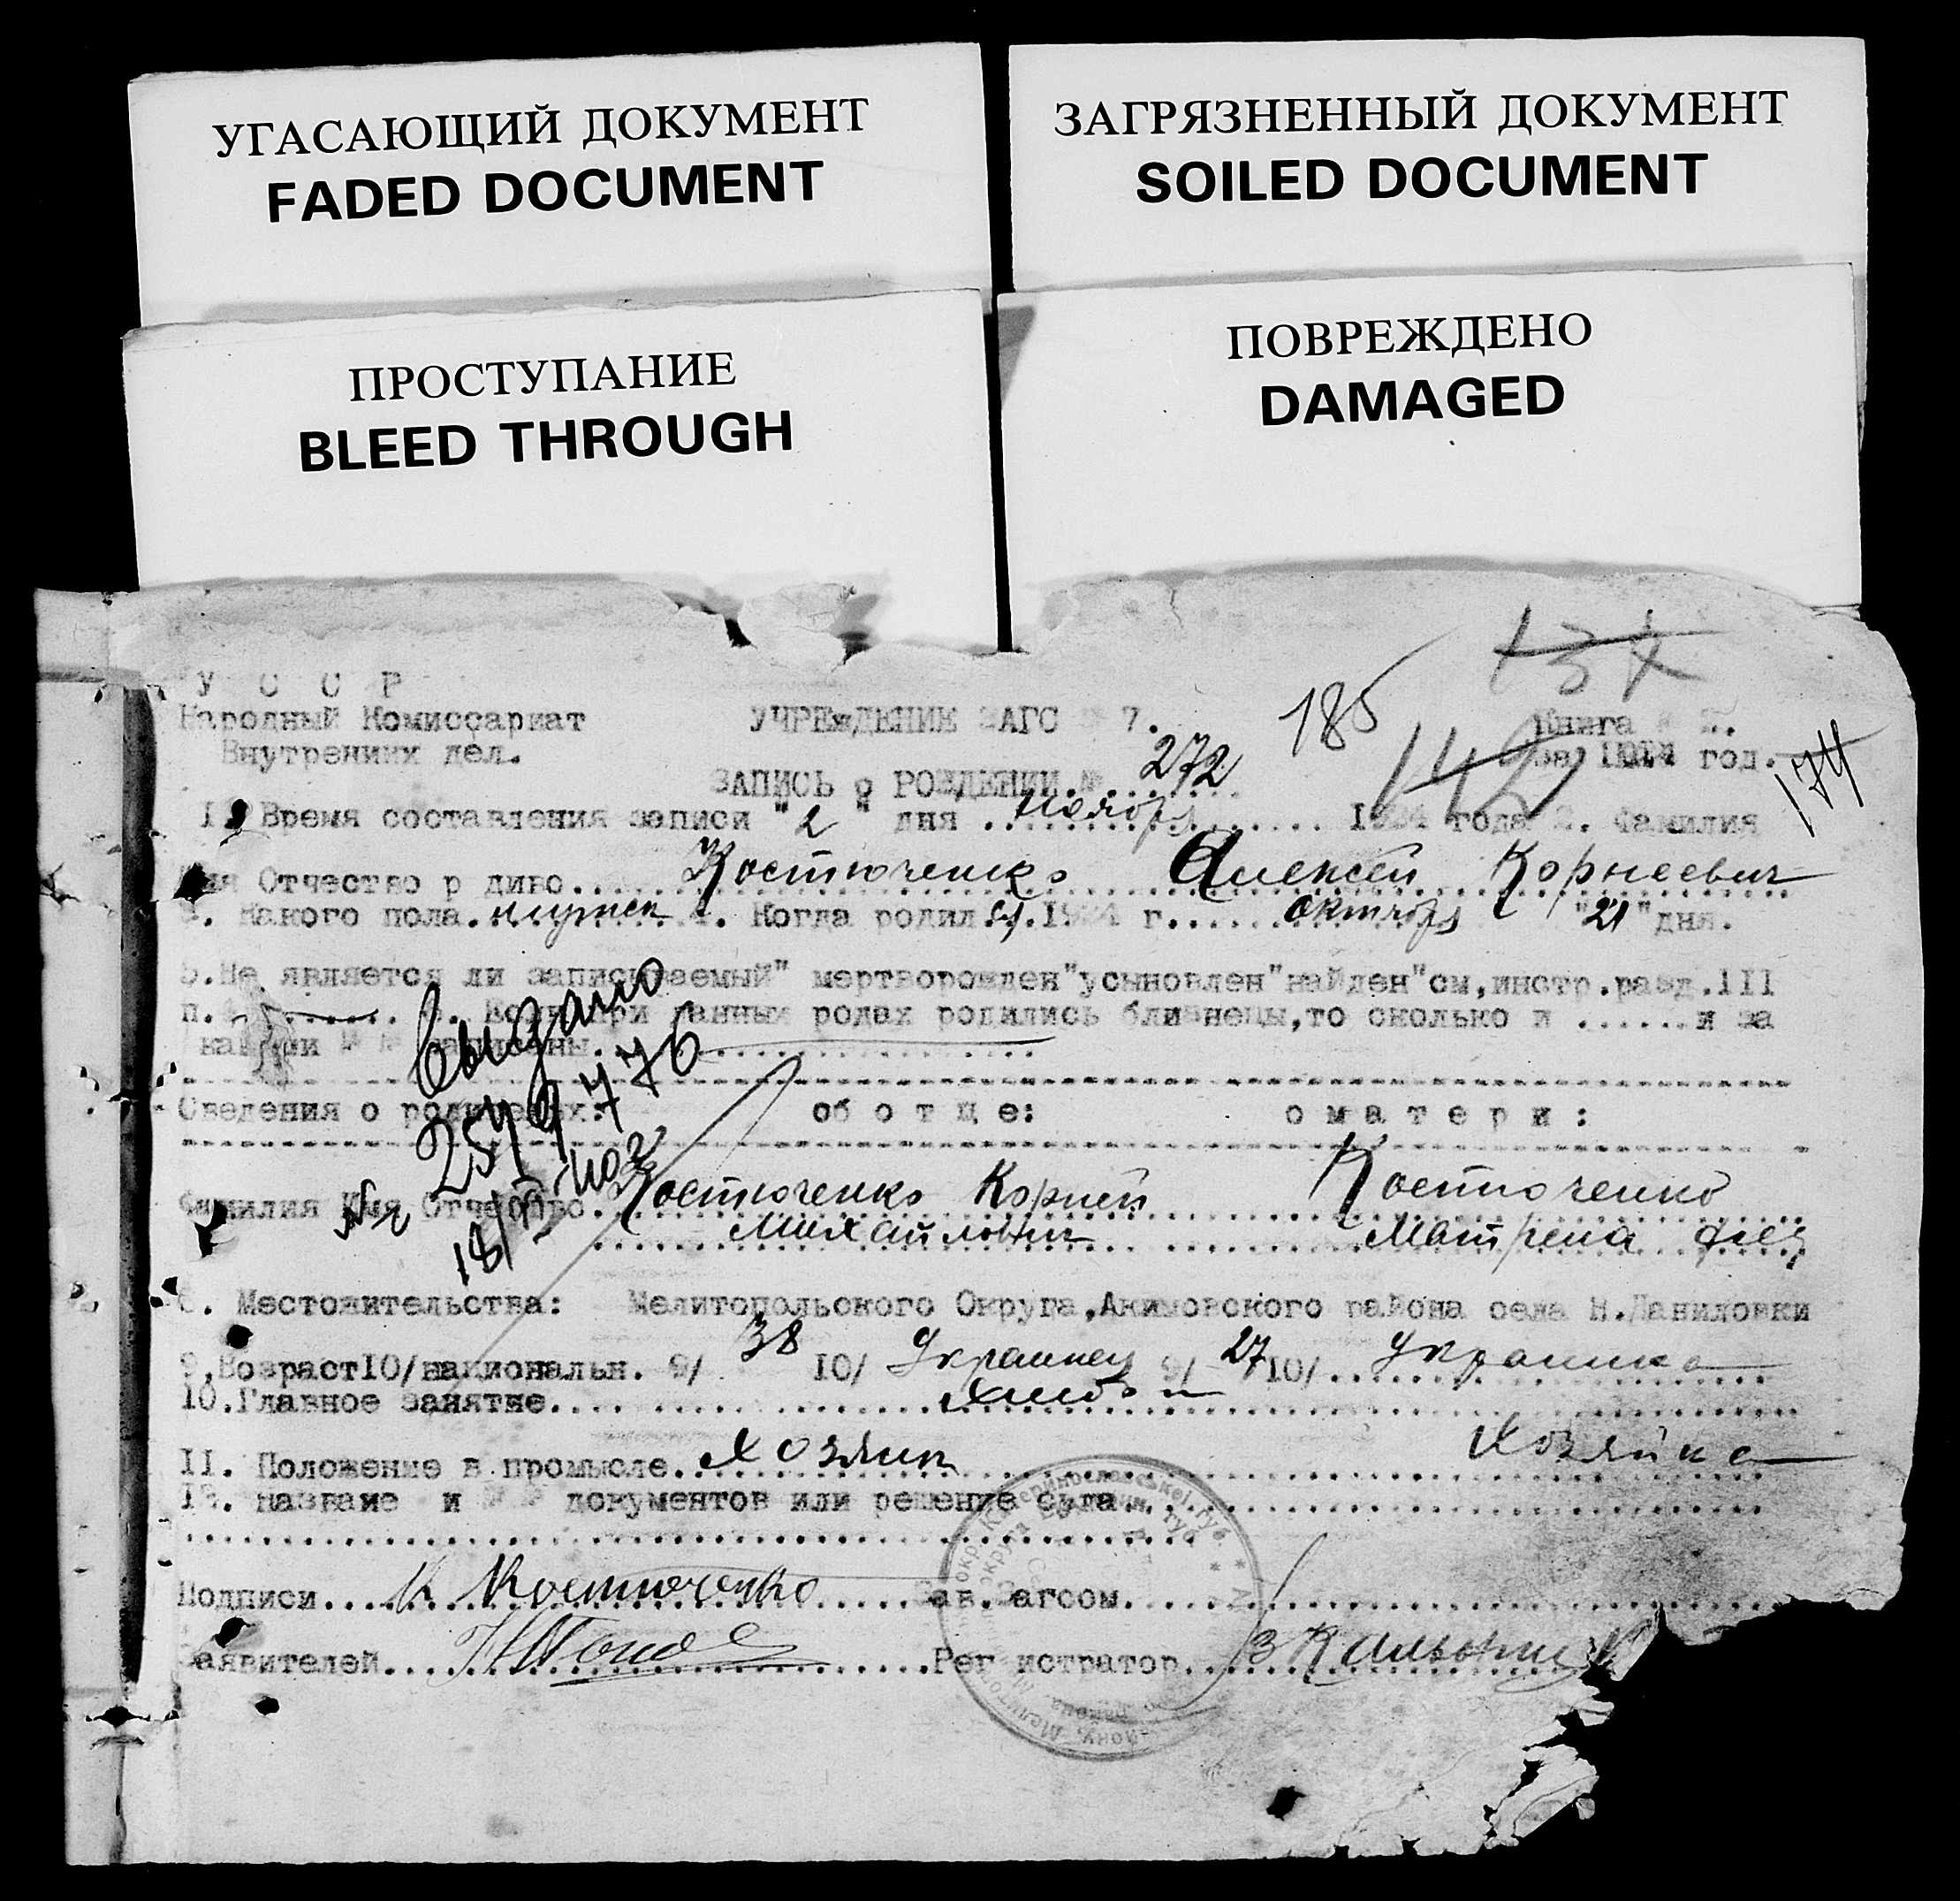 УГАСАЮЩИЙ ДОКУМЕНТ
FADED DOCUMENT
ЗАГРЯЗНЕННЫЙ ДОКУМЕНТ
SOILED DOCUMENT
ПРОСТУПАНИЕ
BLEED THROUGH
ПОВРЕЖДЕНО
DAMAGED
У С С Р
Народный Комиссариат
Внутрених дел.
УЧРЕЖДЕНИЕ ЗАГС 7.
185
Книга
за 1924 год.
142
174
ЗАПИСЬ о РОЖДЕНИИ № 272
1. Время составления записи "2" дня ноября 1924 года 2. Фамилия
Имя Отчество р диво.... Костюченко Алексей Корнеевич
3. Какого пола. мужск 4. Когда родил ся. 1924 г...... октября "21" дня.
5. Не является ли записываемый" мертворожден"усыновлен"найден"см,инстр.разд.III
п. ...... 6. Если при данных родах родились близнецы,то сколько и ......и за
какими № № записаны.
Выдано
Сведения о родителях: об о т ц е: о м а т е р и :
Фамилия Имя Отчество. Костюченко Корней Костюченко
Михайлович Матрена
8. Местожительства: Мелитопольского Округа,Акимовского района села Н.Даниловки
9.Возраст10/национальн. 9/ 38 10/ Украинец 9/ 27 10/ Украинка
10.Главное занятие....
11. Положение в промысле. Хозяин Хозяйка
12. название и № № документов или решение суда..
Подписи.... К Костюченко ..... Зав. Загсом....
Заявителей.... Рег истратор..